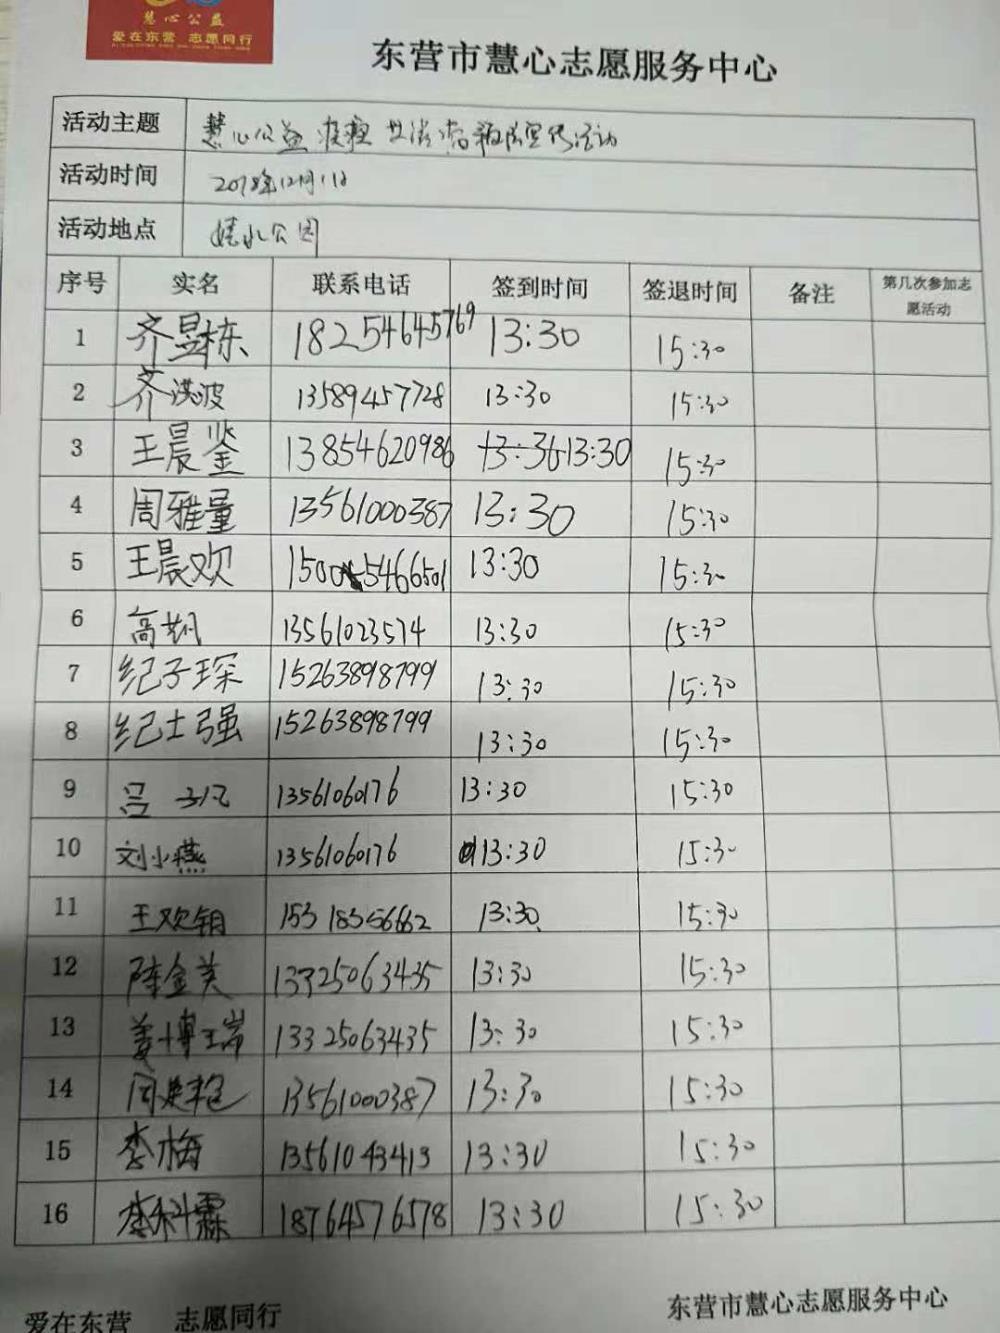 慧心公益
爱在东营 志愿同行
东营市慧心志愿服务中心
活动主题 慧心公益 宣传活动
活动时间 2018年12月1日
活动地点 清水公园
序号 实名 联系电话 签到时间 签退时间 备注 第几次参加志愿活动
1 齐昱栋 18254645769 13:30 15:30
2 齐洪波 13589457728 13:30 15:30
3 王晨鉴 13854620986 13:30 15:30
4 周雅量 13561000387 13:30 15:30
5 王晨欢 15005466501 13:30 15:30
6 高翔 13561023574 13:30 15:30
7 纪子琛 15263898799 13:30 15:30
8 纪士强 15263898799 13:30 15:30
9 吕 13561060176 13:30 15:30
10 刘小燕 13561060176 13:30 15:30
11 王欢钥 15318356662 13:30 15:30
12 陈金美 13325063435 13:30 15:30
13 姜博瑞 13325063435 13:30 15:30
14 周 13561000387 13:30 15:30
15 李梅 13561043413 13:30 15:30
16 李科霖 18764576578 13:30 15:30
爱在东营 志愿同行 东营市慧心志愿服务中心